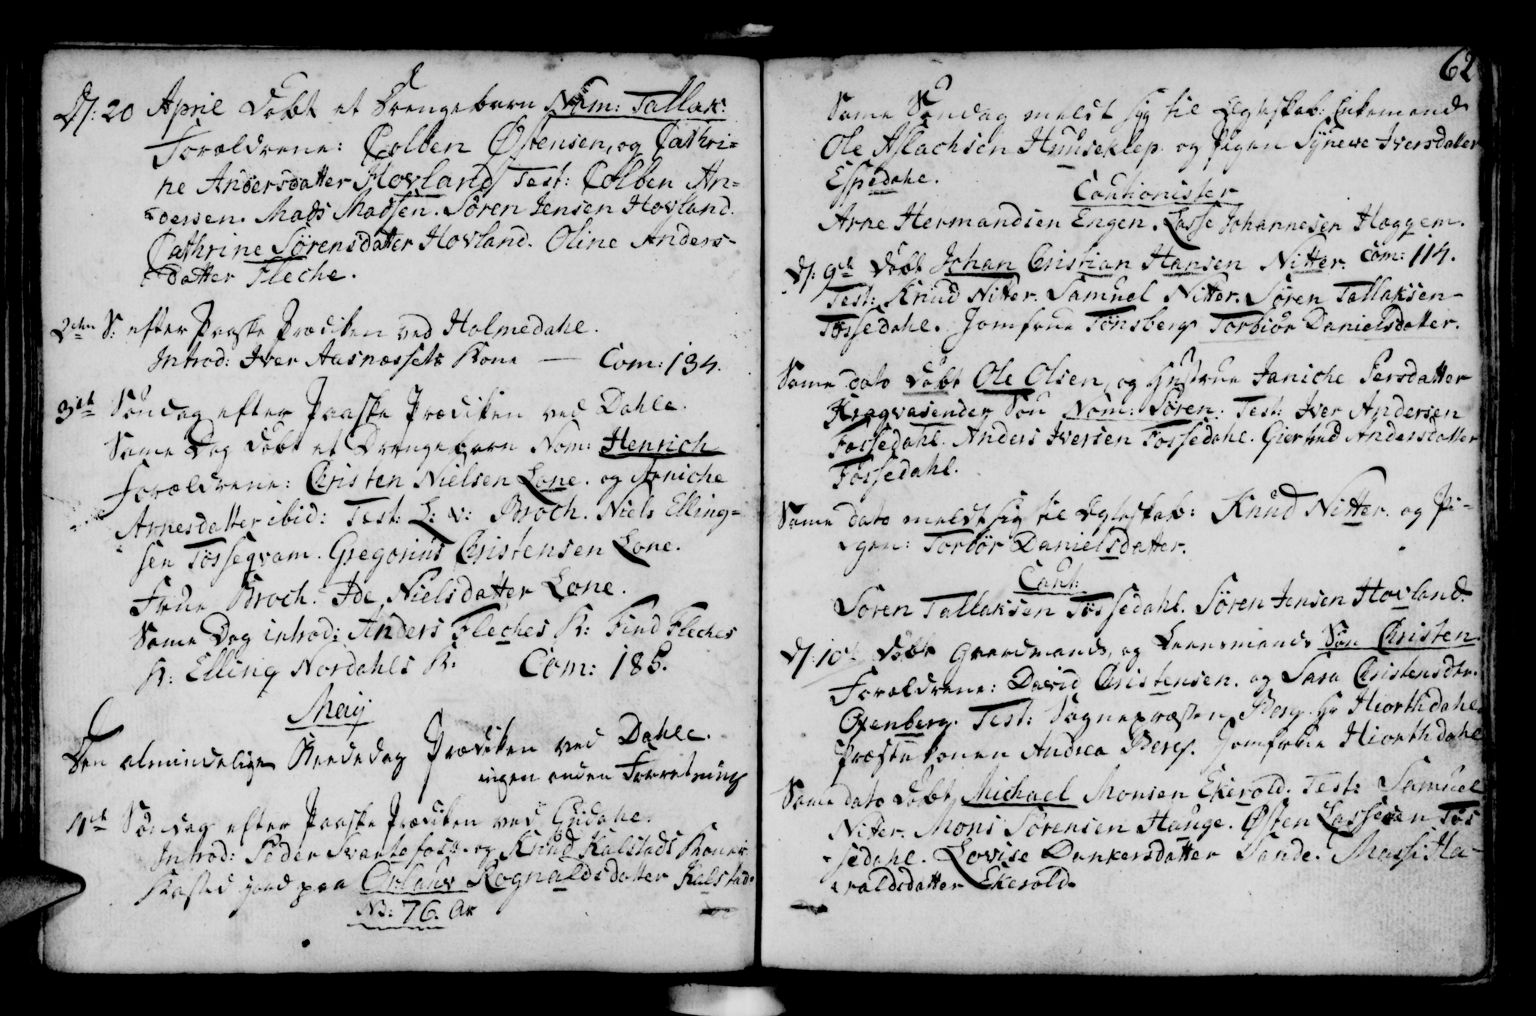 D: 20 April Döbt et Drengebarn Nom: Tallak.
Forældrene: Colben Østensen, og Cathri=
ne Andersdatter Hovland Test: Colben An=
dersen. Mads Madsen. Sören Jensen Hovland.
Cathrine Sörensdatter Hovland. Oline Anders-
datter Fleche.
2den S: efter Paaske Prædiken ved Holmedahl.
Introd: Iver Aasnæssets Kone — Com: 134.
3die Söndag efter Paaske Prædiken ved Dahle.
Same Dag döbt et Drengebarn Nom: Henrich
Forældrene: Christen Nielsen Lone. og Janiche
Arnesdatter ibid: Test: L: v: Broch. Niels Elling=
sen Tösseqvam. Gregorius Christensen Lone.
Frue Broch. Ide Nielsdatter Lone.
Same Dag introd: Anders Fleches K: Find Fleches
K: Elling Nordahls K. Com: 185.
Maij
Den almindelige Beededag Prædiken ved Dahle.
ingen anden Forretning
4de Söndag efter Paaske Prædiken ved Guldahl.
Introd: Peder og Knud Kalstads Koner
Kasted Jord paa Rognaldsdatter Kalstad.
No: 76. Ar
62
Same Söndag meldt sig til Egteskab: Enkemand
Ole Aslachsen Huuseklep og Pigen Synewe Iversdatter
Espedahl.
Cautionister
Arne Hermandsen Engen. Lasse Johannesen Hæggem.
D: 9de Döbt Johan Cristian Hansen Nitter. Com: 114.
Test: Knud Nitter. Samuel Nitter. Sören Tallaksen
Tössedahl. Jomfrue Tönsberg Torbiör Danielsdatter.
Same dato döbt Ole Olsen, og Hustrue Janiche Persdatter
Krogvasender Sön Nom: Sören: Test: Iver Andersen
Fossedahl. Anders Iversen Tössedahl. Giertrud Andersdatter
Fössedahl.
Same dato meldt sig til Egteskab: Knud Nitter. og Pi-
gen: Torbör Danielsdatter.
Caut:
Sören Tallaksen Tössedahl. Sören Jensen Hovland.
D: 10de Döbt Gaardmands, og Leensmands Sön Christen.
Forældrene: David Christensen. og Sara Christensdtr.
Osenberg. Test: Sognepræsten Berg. Hr Hiorthdahl.
Præstekonen Andrea Berg. Jomfrue Hiorthdahl
Same dato döbt Michael Monsen Ekerold. Test: Samuel
Nitter. Mons Sörensen Hauge. Østen Lassesen Tös
sedahl. Lovise Dankersdatter Sande. Massi Ha-
raldsdatter Ekerold.